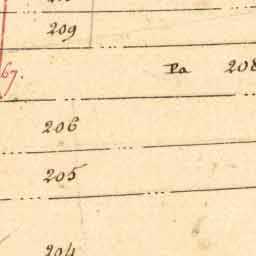 209
67.
Pa 208
206
205
204